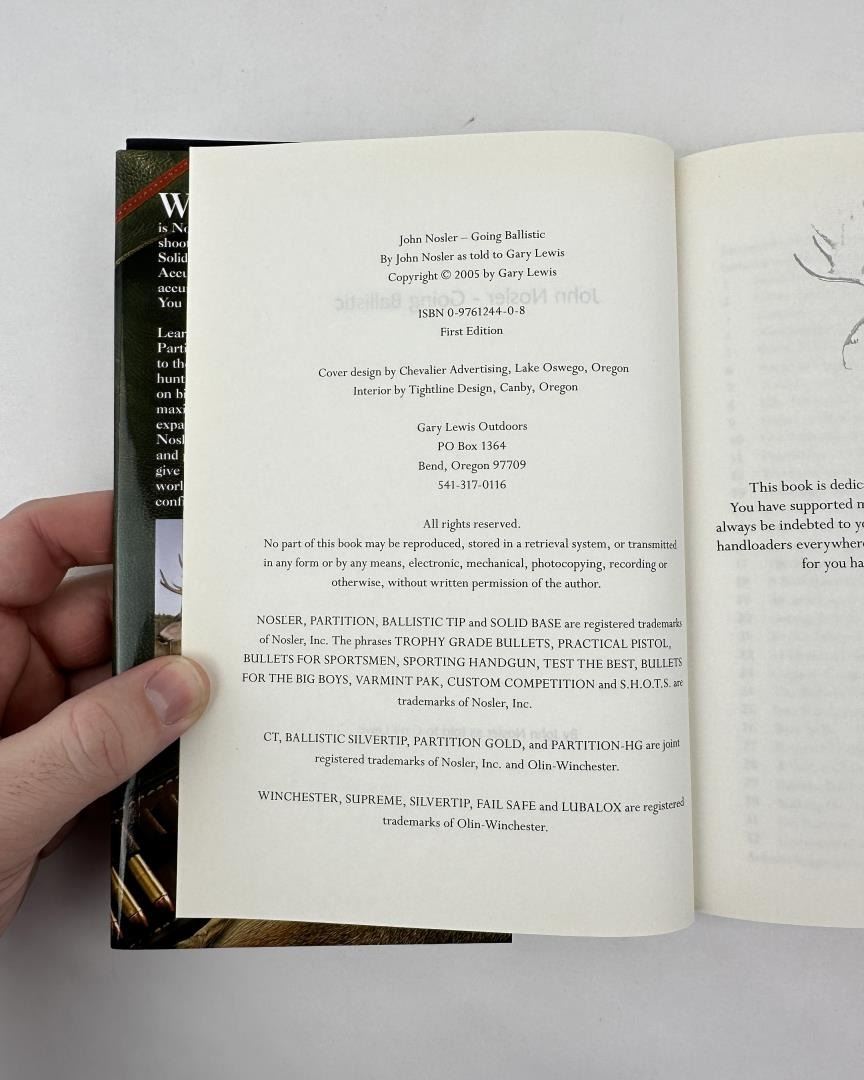 W
is No
shoo
Solid
Accu
accu
You
Lear
Parti
to th
hunt
on bi
maxi
expa
Nosl
and
give
worl
conf
John Nosler – Going Ballistic
By John Nosler as told to Gary Lewis
Copyright © 2005 by Gary Lewis
ISBN 0-9761244-0-8
First Edition
Cover design by Chevalier Advertising, Lake Oswego, Oregon
Interior by Tightline Design, Canby, Oregon
Gary Lewis Outdoors
PO Box 1364
Bend, Oregon 97709
541-317-0116
All rights reserved.
No part of this book may be reproduced, stored in a retrieval system, or transmitted
in any form or by any means, electronic, mechanical, photocopying, recording or
otherwise, without written permission of the author.
NOSLER, PARTITION, BALLISTIC TIP and SOLID BASE are registered trademarks
of Nosler, Inc. The phrases TROPHY GRADE BULLETS, PRACTICAL PISTOL,
BULLETS FOR SPORTSMEN, SPORTING HANDGUN, TEST THE BEST, BULLETS
FOR THE BIG BOYS, VARMINT PAK, CUSTOM COMPETITION and S.H.O.T.S. are
trademarks of Nosler, Inc.
CT, BALLISTIC SILVERTIP, PARTITION GOLD, and PARTITION-HG are joint
registered trademarks of Nosler, Inc. and Olin-Winchester.
WINCHESTER, SUPREME, SILVERTIP, FAIL SAFE and LUBALOX are registered
trademarks of Olin-Winchester.
This book is dedic
You have supported m
always be indebted to yo
handloaders everywhere
for you ha